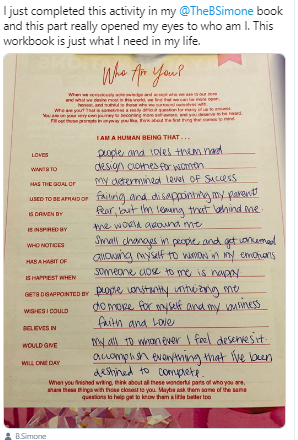 I just completed this activity in my @TheBSimone book
and this part really opened my eyes to who am I. This
workbook is just what I need in my life.
Who Are You?
When we consciously acknowledge and accept who we are to our core
and what we desire most in this world, we find that we can be more open,
honest, and truthful to those who we surround ourselves with.
Who are you? That is sometimes a really difficult question for many of us to answer.
You are on your very own journey to becoming more self-aware, and you deserve to be heard.
Fill out these prompts in anyway you like, think about the first thing that comes to mind.
I AM A HUMAN BEING THAT . . .
LOVES people and loves them hard
WANTS TO design clothes for women
HAS THE GOAL OF my determined level of success
USED TO BE AFRAID OF failing and disappointing my parents
IS DRIVEN BY fear, but I'm leaving that behind me.
IS INSPIRED BY the world around me
WHO NOTICES Small changes in people and get consumed
HAS A HABIT OF allowing myself to in my emotions
IS HAPPIEST WHEN someone close to me is happy
GETS DISAPPOINTED BY people constantly
WISHES I COULD do more for myself and my business
BELIEVES IN faith and Love
WOULD GIVE my all to whom ever I feel deserves it.
WILL ONE DAY accomplish everything that I've been
destined to complete.
When you finished writing, think about all these wonderful parts of who you are,
share these things with those closest to you. Maybe ask them some of the same
questions to help get to know them a little better too
B.Simone